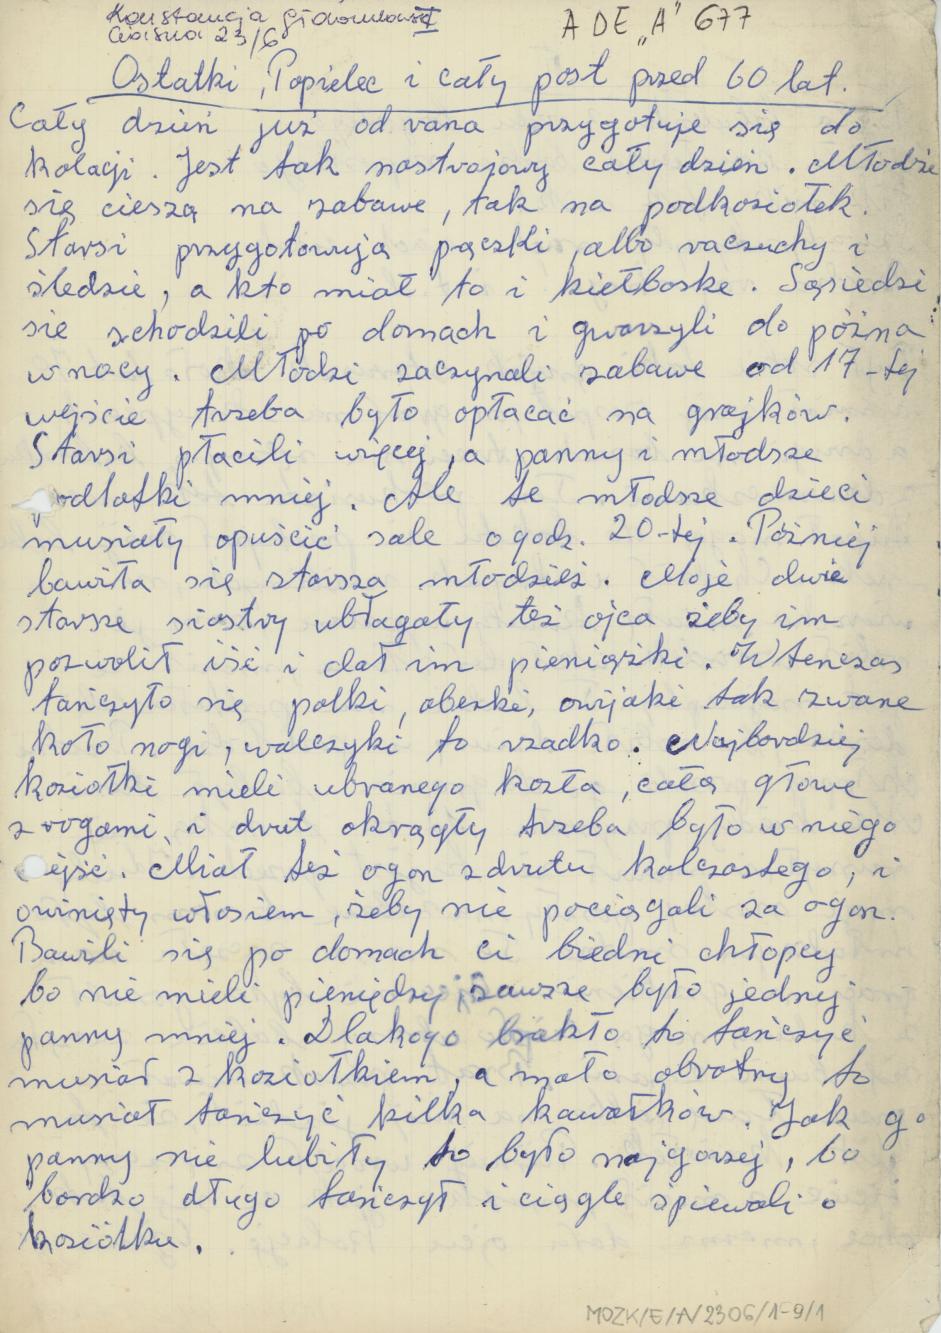 Konstancja
Ciasna 23/6 II
ADE „A” 677
Ostatki, Popielec i cały post przed 60 lat.
Cały dzień już od rana przygotuje się do
kolacji. Jest tak nastrojowy cały dzień. Młodzi
się cieszą na zabawe, tak na podkoziołek.
Starsi przygotowują pączki, albo raczuchy i
śledzie, a kto miał to i kiełbaske. Sąsiedzi
sie schodzili po domach i gwarzyli do późna
w nocy. Młodzi zaczynali zabawe od 17-tej
wejście trzeba było opłacać na grajków.
Starsi płacili więcej, a panny i młodsze
podlotki mniej. Ale te młodsze dzieci
musiały opuścić sale o godz. 20-tej. Później
bawiła się starsza młodzież. Moje dwie
starsze siostry ubłagały też ojca żeby im
pozwolił iść i dał im pieniążki. Wtenczas
tańczyło się polki, oberki, owijaki tak zwane
koło nogi, walczyki to rzadko. Najbardziej
koziołki mieli ubranego kozła, całą głowe
z rogami, i drut okrągły trzeba było w niego
wejść. Miał też ogon z drutu kolczastego, i
owinięty włosiem, żeby nie pociągali za ogon.
Bawili się po domach ci biedni chłopcy
bo nie mieli pieniędzy, zawsze było jednej
panny mniej. Dlakogo brakło to tańczyć
musiał z koziołkiem, a mało obrotny to
musiał tańczyć kilka kawałków. Jak go
panny nie lubiły to było najgorzej, bo
bardzo długo tańczył i ciągle śpiewali o
koziółku.
MOZK/E/A/2306/1-9/1